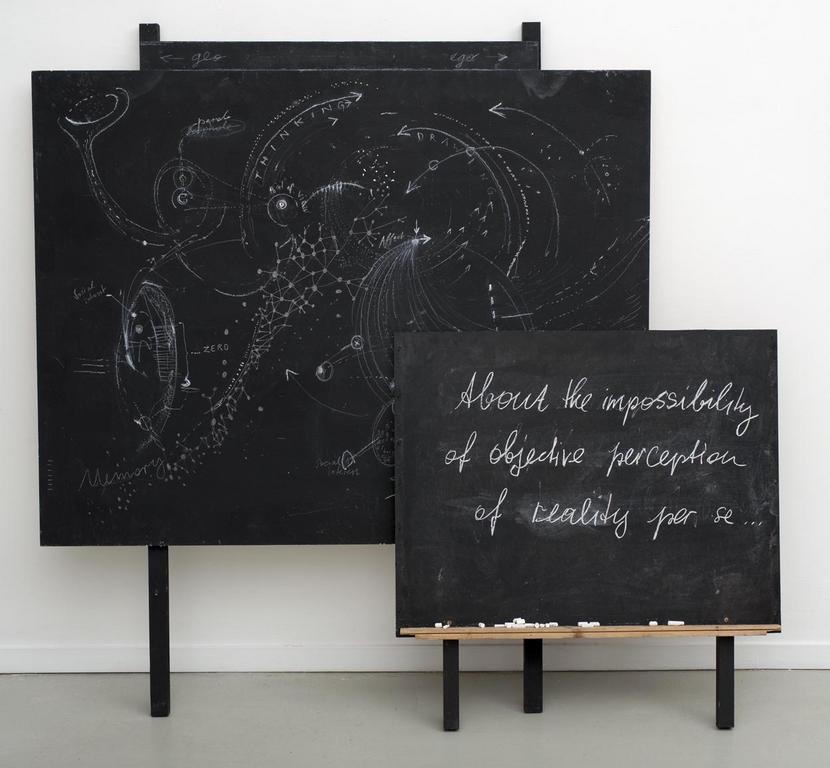 geo
ego
THINKING
ZERO
Memory
About the impossibility
of objective perception
of reality per se...